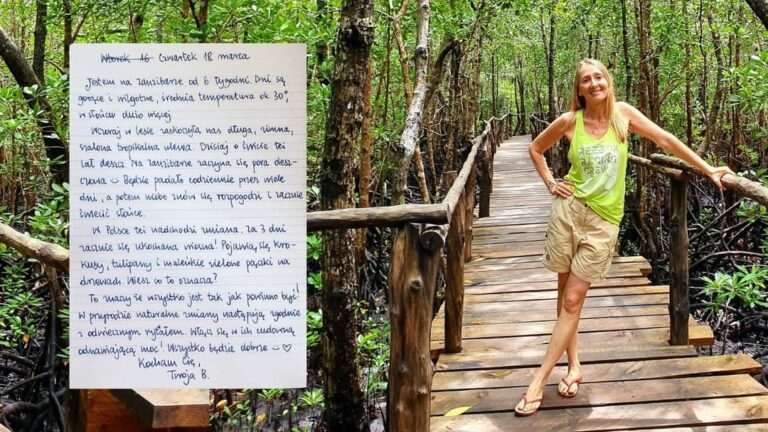 Wtorek 16 Czwartek 18 marca
Jestem na Zanzibarze od 6 tygodni. Dni są
gorące i wilgotne, średnia temperatura ok 30°,
w słońcu dużo więcej.
Wczoraj w lesie zaskoczyła nas długa, zimna,
szalona tropikalna ulewa. Dzisiaj o świcie też
lał deszcz. Na Zanzibarze zaczyna się pora desz-
czowa Będzie padało codziennie przez wiele
dni, a potem niebo znów się rozpogodzi i zacznie
świecić słońce.
W Polsce też nadchodzi zmiana. Za 3 dni
zacznie się ukochana wiosna! Pojawią się kro-
kusy, tulipany i maleńkie zielone pączki na
drzewach. Wiesz co to oznacza?
To znaczy że wszystko jest tak jak powinno być!
W przyrodzie naturalne zmiany następują zgodnie
z odwiecznym rytmem. Włącz się w ich cudowną
odnawiającą moc! Wszystko będzie dobrze
Kocham Cię,
Twoja B.
REEBOK
RACING
CREW